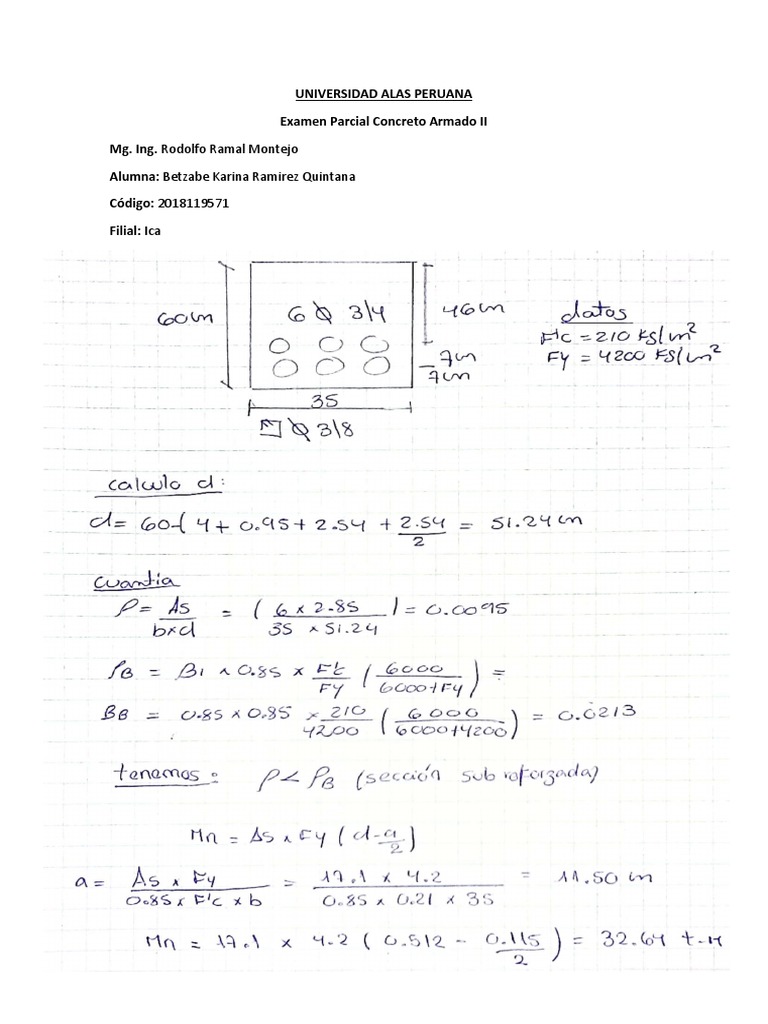 UNIVERSIDAD ALAS PERUANA
Examen Parcial Concreto Armado II
Mg. Ing. Rodolfo Ramal Montejo
Alumna: Betzabe Karina Ramirez Quintana
Código: 2018119571
Filial: Ica
60cm
6 ϕ 3/4
46cm
datos
F'c = 210 KS/cm²
Fy = 4200 KS/cm²
7cm
7cm
35
ϕ 3/8
calculo d:
d= 60-(4+0.95+2.54+2.54/2 = 51.24cm
cuantia
ρ= As/bxd = (6 x 2.85/35 x 51.24) = 0.0095
ρB = B1 x 0.85 x F'c/Fy (6000/6000+Fy) =
BB = 0.85 x 0.85 x 210/4200 (6000/6000+4200) = 0.0213
tenemos: ρ<ρB (sección sub reforzada)
Mn = As x Fy (d-a/2)
a= As x Fy/0.85 x F'c x b = 17.1 x 4.2/0.85 x 0.21 x 35 = 11.50 cm
Mn = 17.1 x 4.2 (0.512 - 0.115/2) = 32.64 t-M